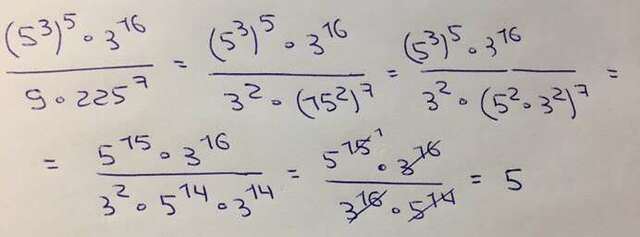 (5³)⁵ · 3¹⁶ / 9 · 225⁷ = (5³)⁵ · 3¹⁶ / 3² · (15²)⁷ = (5³)⁵ · 3¹⁶ / 3² · (5² · 3²)⁷ =
= 5¹⁵ · 3¹⁶ / 3² · 5¹⁴ · 3¹⁴ = 5¹⁵ ¹ · 3¹⁶ / 3¹⁶ · 5¹⁴ = 5